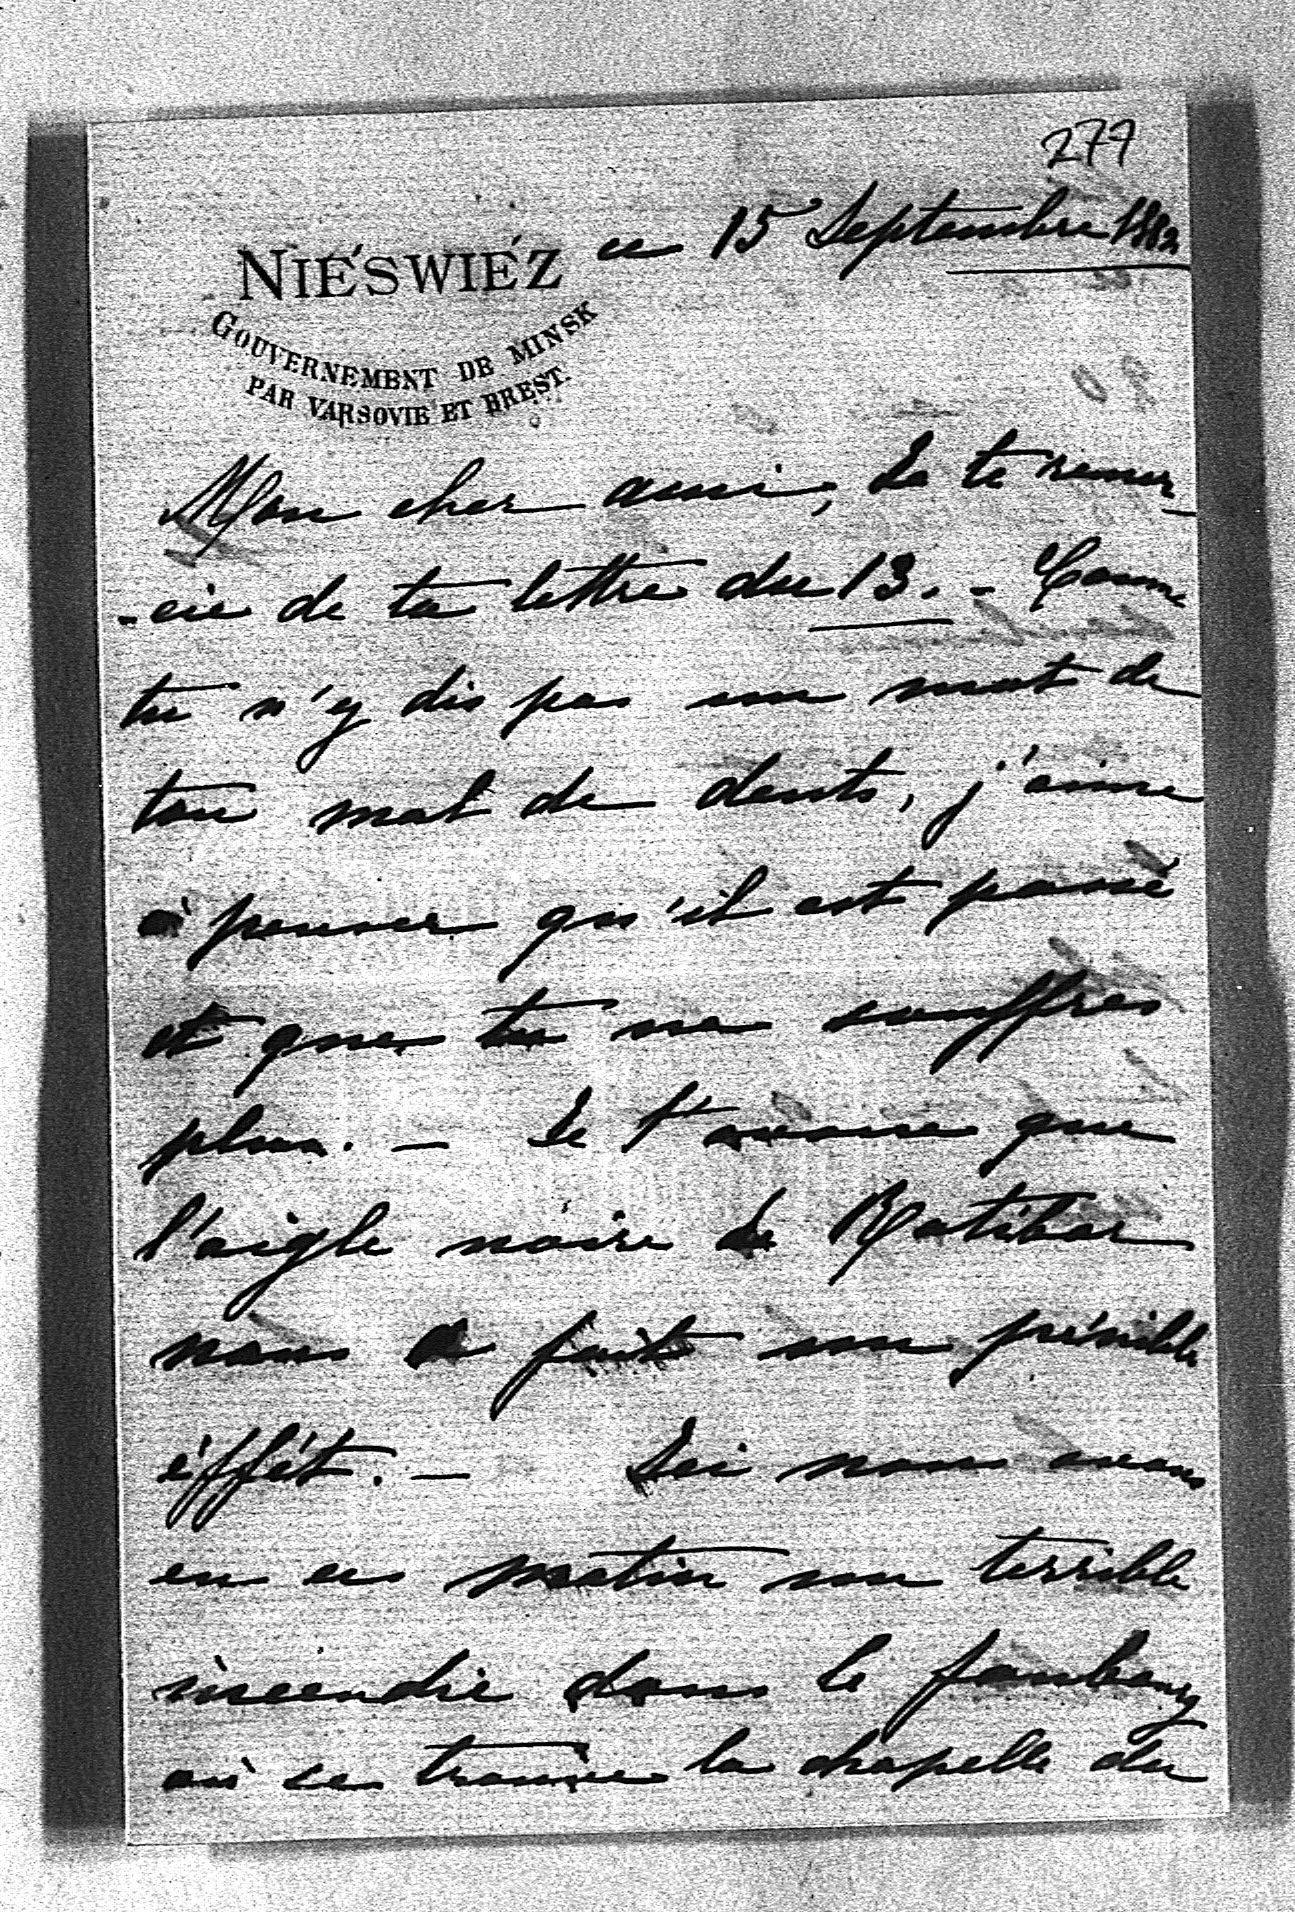 277
ce 15 Septembre 1882
NIEŚWIÉZ
GOUVERNEMENT DE MINSK
PAR VARSOVIE ET BREST.
Mon cher ami, Je te remer-
-cie de ta lettre du 13. - Comme
tu n'y dis pas un mot de
ton mal de dents, j'aime
à penser qu'il est passé
et que tu ne souffres
plus. — Je t'avoue que
l'aigle noire de Ratibor
nous a fait un pénible
éffét. — Ici nous avons
eu ce matin un terrible
incendie dans le faubourg
où se trouve la chapelle du